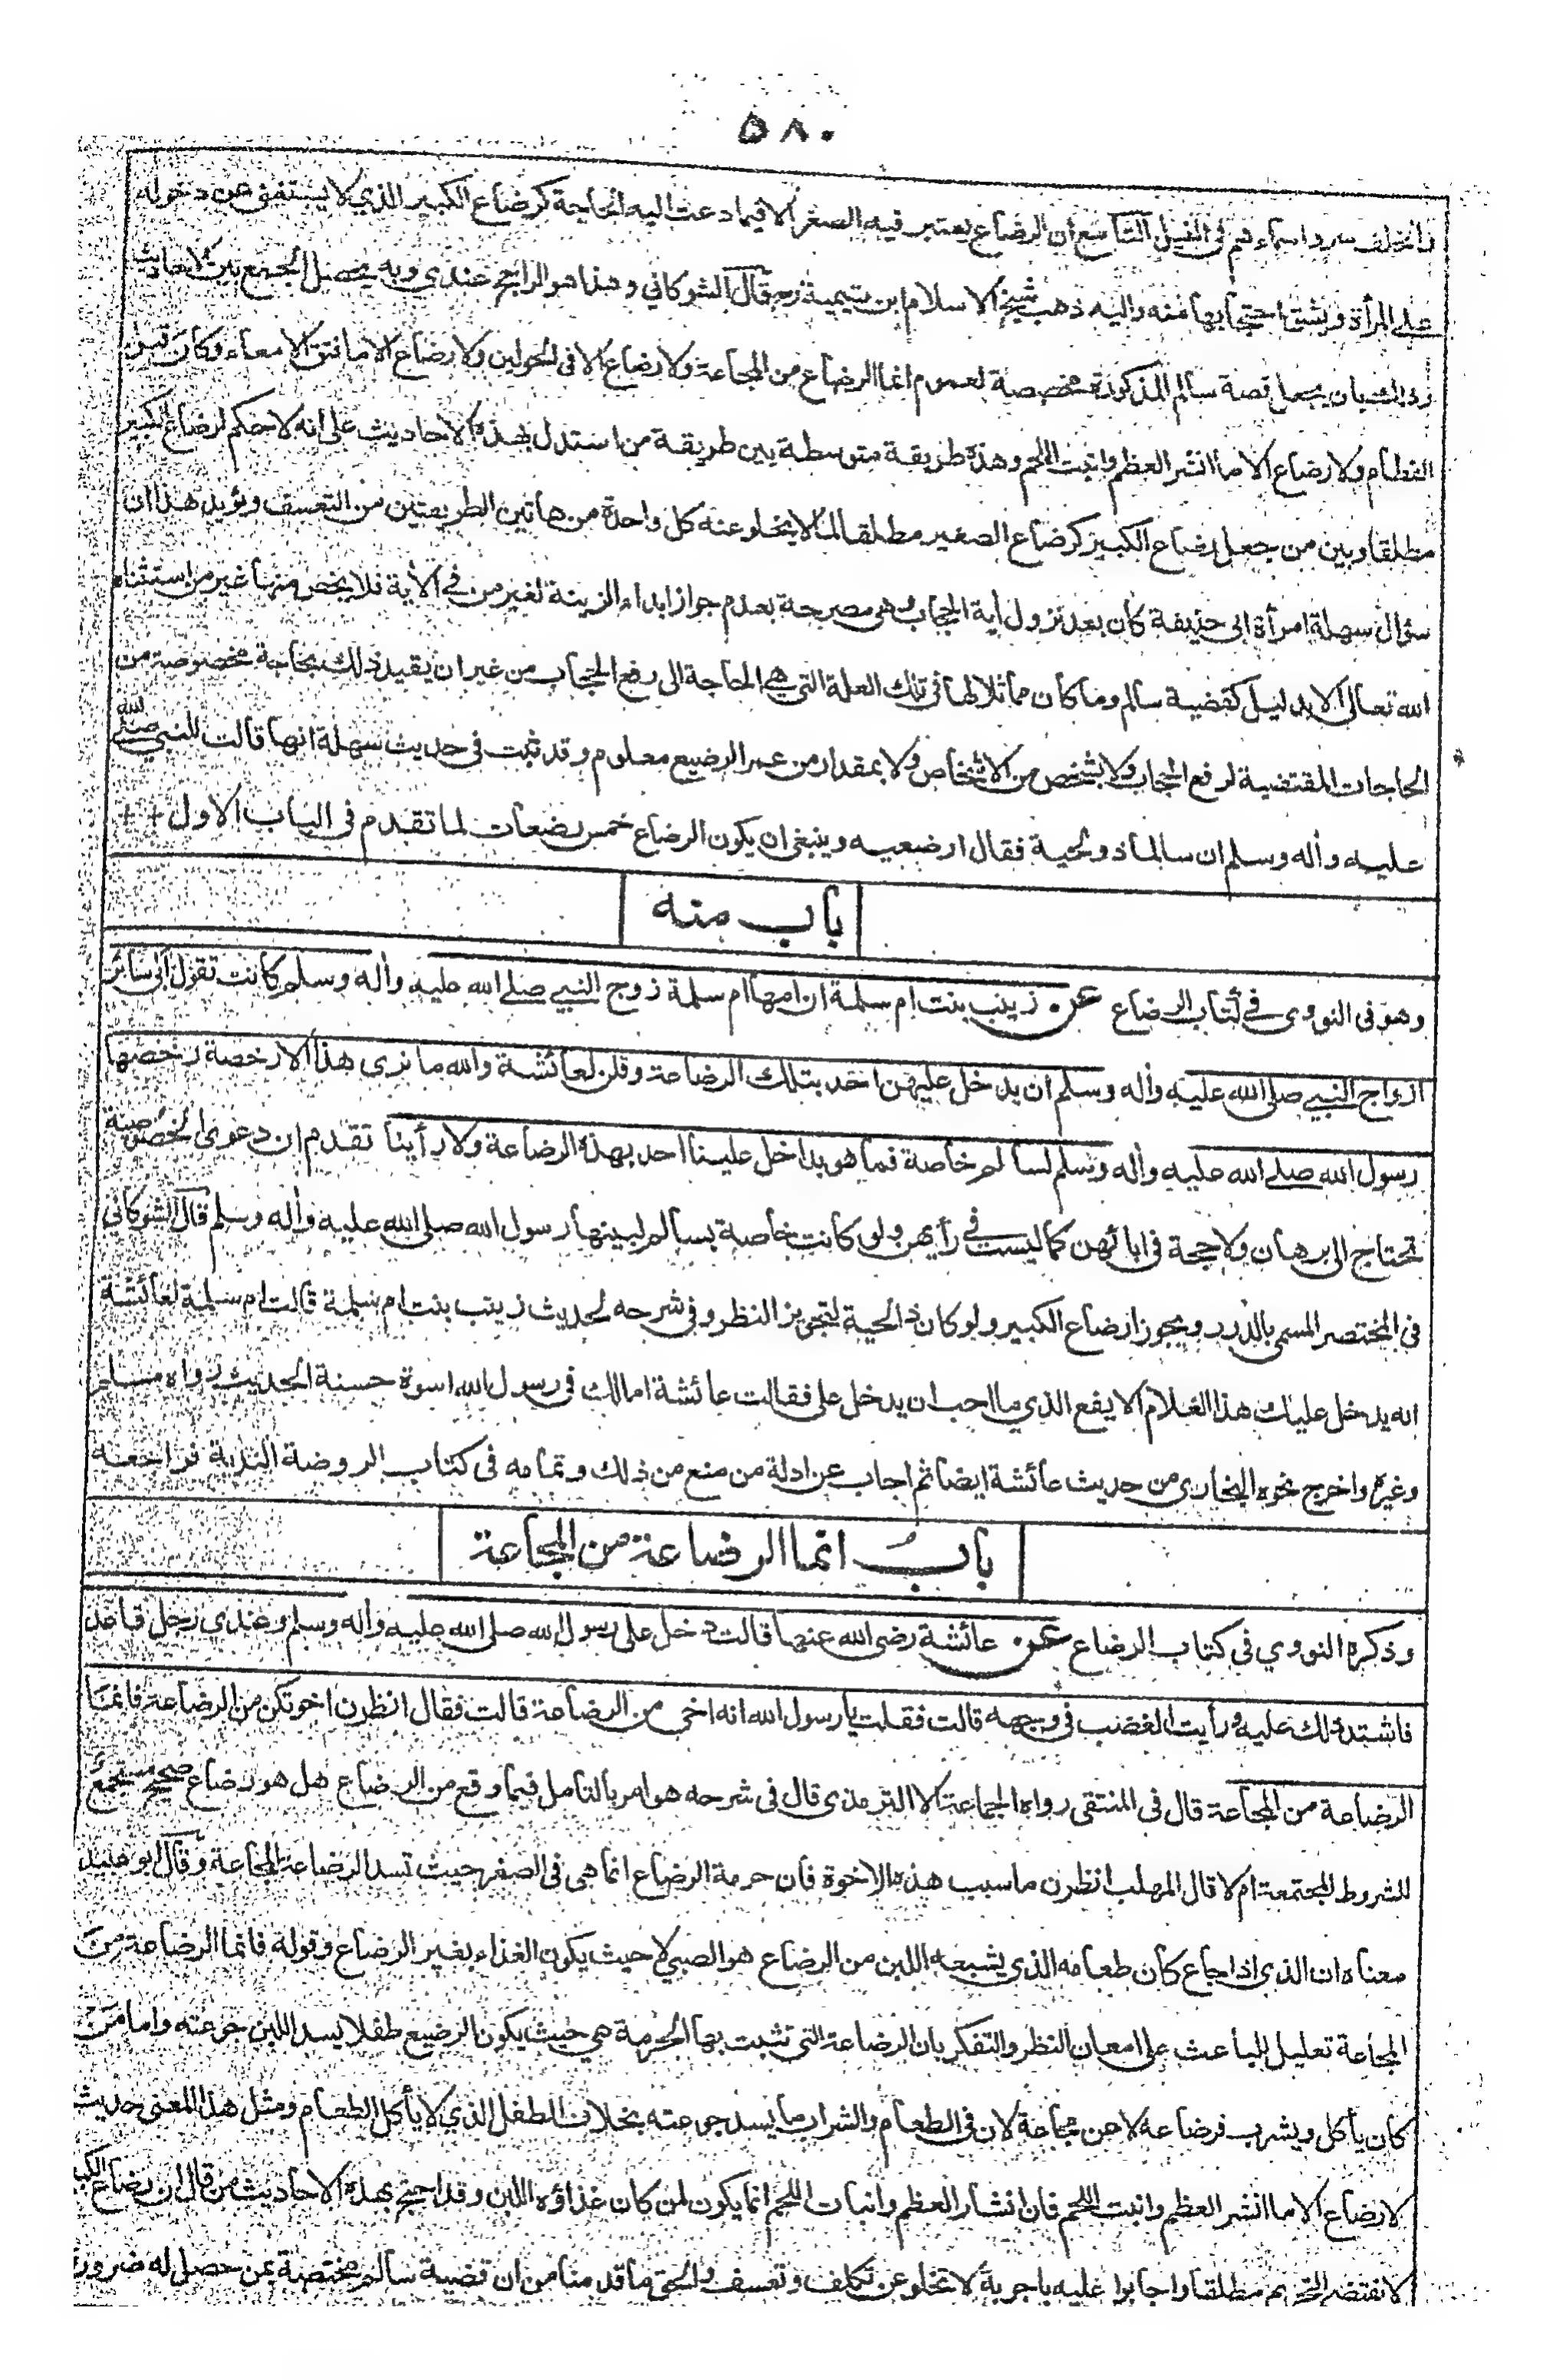 ٥٨٠
القول التاسع ان الرضاع يعتبر فيه الصغر الا فيما دعت اليه الحاجة كرضاع الكبير الذي لا يستغني عن دخوله
على المرأة ويشق احتجابها منه واليه ذهب شيخ الاسلام ابن تيمية رح قال الشوكاني وهذا هو الراجح عندي وبه يحصل الجمع بين الاحاديث
وذلك بان يجعل قصة سالم المذكورة مخصصة لعموم انما الرضاع من المجاعة ولا رضاع الا في الحولين ولا رضاع الا ما فتق الامعاء وكان قبل
الفطام ولا رضاع الا ما انشر العظم وانبت اللحم وهذه طريقة متوسطة بين طريقة من استدل بهذه الاحاديث على انه لا حكم لرضاع الكبير
مطلقا وبين من جعل رضاع الكبير كرضاع الصغير مطلقا لما لا يخلو عنه كل واحدة من هاتين الطريقتين من التعسف ويؤيد هذا ان
سؤال سهلة امرأة ابى حذيفة كان بعد نزول أية الحجاب وهى مصرحة بعدم جواز ابداء الزينة لغير من في الأية فلا يخص منها غير من استثناه
الله تعالى الا بدليل كقضية سالم وما كان مماثلا لها في تلك العلة التي هي الحاجة الى رفع الحجاب من غير ان يقيد ذلك بحاجة مخصوصة من
الحاجات المقتضية لرفع الحجاب ولا بشخص من الاشخاص ولا بمقدار من عمر الرضيع معلوم وقد ثبت في حديث سهلة انها قالت للنبي صلى الله
عليه وأله وسلم ان سالما ذو لحية فقال ارضعيه وينبغى ان يكون الرضاع خمس رضعات لما تقدم فى الباب الاول
باب منه
وهو فى النووى في كتاب الرضاع عن زينب بنت ام سلمة ان امها ام سلمة زوج النبي صلى الله عليه وأله وسلم كانت تقول ابى سائر
ازواج النبي صلى الله عليه وأله وسلم ان يدخل عليهن احد بتلك الرضاعة وقلن لعائشة والله ما نرى هذا الا رخصة رخصها
رسول الله صلى الله عليه وأله وسلم لسالم خاصة فما هو بداخل علينا احد بهذه الرضاعة ولا رأينا تقدم ان دعوى الخصوصية
تحتاج الى برهان ولا حجة في ابائهن كما ليست في رأيهن ولو كانت خاصة بسالم لبينها رسول الله صلى الله عليه وأله وسلم قال الشوكاني
في المختصر المسمى بالدرر ويجوز ارضاع الكبير ولو كان ذا لحية لتجويز النظر وفي شرحه لحديث زينب بنت ام سلمة قالت ام سلمة لعائشة
انه يدخل عليك هذا الغلام الايفع الذي ما احب ان يدخل على فقالت عائشة امالك في رسول الله اسوة حسنة الحديث رواه مسلم
وغيره واخرج نحوه البخارى من حديث عائشة ايضا ثم اجاب عن ادلة من منع من ذلك وتمامه فى كتاب الروضة الندية فراجعه
باب انما الرضاعة من المجاعة
وذكره النووي في كتاب الرضاع عن عائشة رضى الله عنها قالت دخل على رسول الله صلى الله عليه وأله وسلم وعندى رجل قاعد
فاشتد ذلك عليه ورأيت الغضب فى وجهه قالت فقلت يا رسول الله انه اخى من الرضاعة قالت فقال انظرن اخوتكن من الرضاعة فانما
الرضاعة من المجاعة قال فى المنتقى رواه الجماعة الا الترمذى قال فى شرحه هو امر بالتامل فيما وقع من الرضاع هل هو رضاع صحيح مستجمع
للشروط المجتمعة ام لا قال المهلب انظرن ما سبب هذه الاخوة فان حرمة الرضاع انما هى فى الصغر حيث تسد الرضاعة المجاعة وقال ابو عبيد
معناه ان الذى اذا جاع كان طعامه الذي يشبعه اللبن من الرضاع هو الصبي لا حيث يكون الغذاء بغير الرضاع وقوله فانما الرضاعة من
المجاعة تعليل للباعث على امعان النظر والتفكر بان الرضاعة التي تثبت بها الحرمة هي حيث يكون الرضيع طفلا يسد اللبن جوعته واما من
كان يأكل ويشرب فرضاعه لا عن مجاعة لان فى الطعام والشراب ما يسد جوعته بخلاف الطفل الذي لا يأكل الطعام ومثل هذا المعنى حديث
لا رضاع الا ما انشر العظم وانبت اللحم فان انشار العظم وانبات اللحم انما يكون لمن كان غذاؤه اللبن وقد احتج بهذه الاحاديث من قال ان رضاع الكبير
لا يقتضى التحريم مطلقا واجابوا عليه باجوبة لا تخلو عن تكلف وتعسف والحق ما قدمنا من ان قضية سالم مختصة بمن حصل له ضرورة